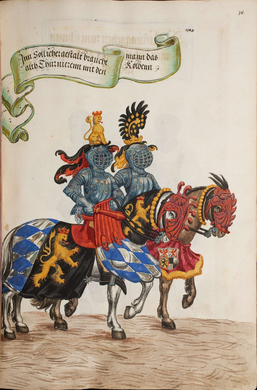 Inn Sollicher gestalt braucht mann das
alth Thurnierenn mit den Kolbenn